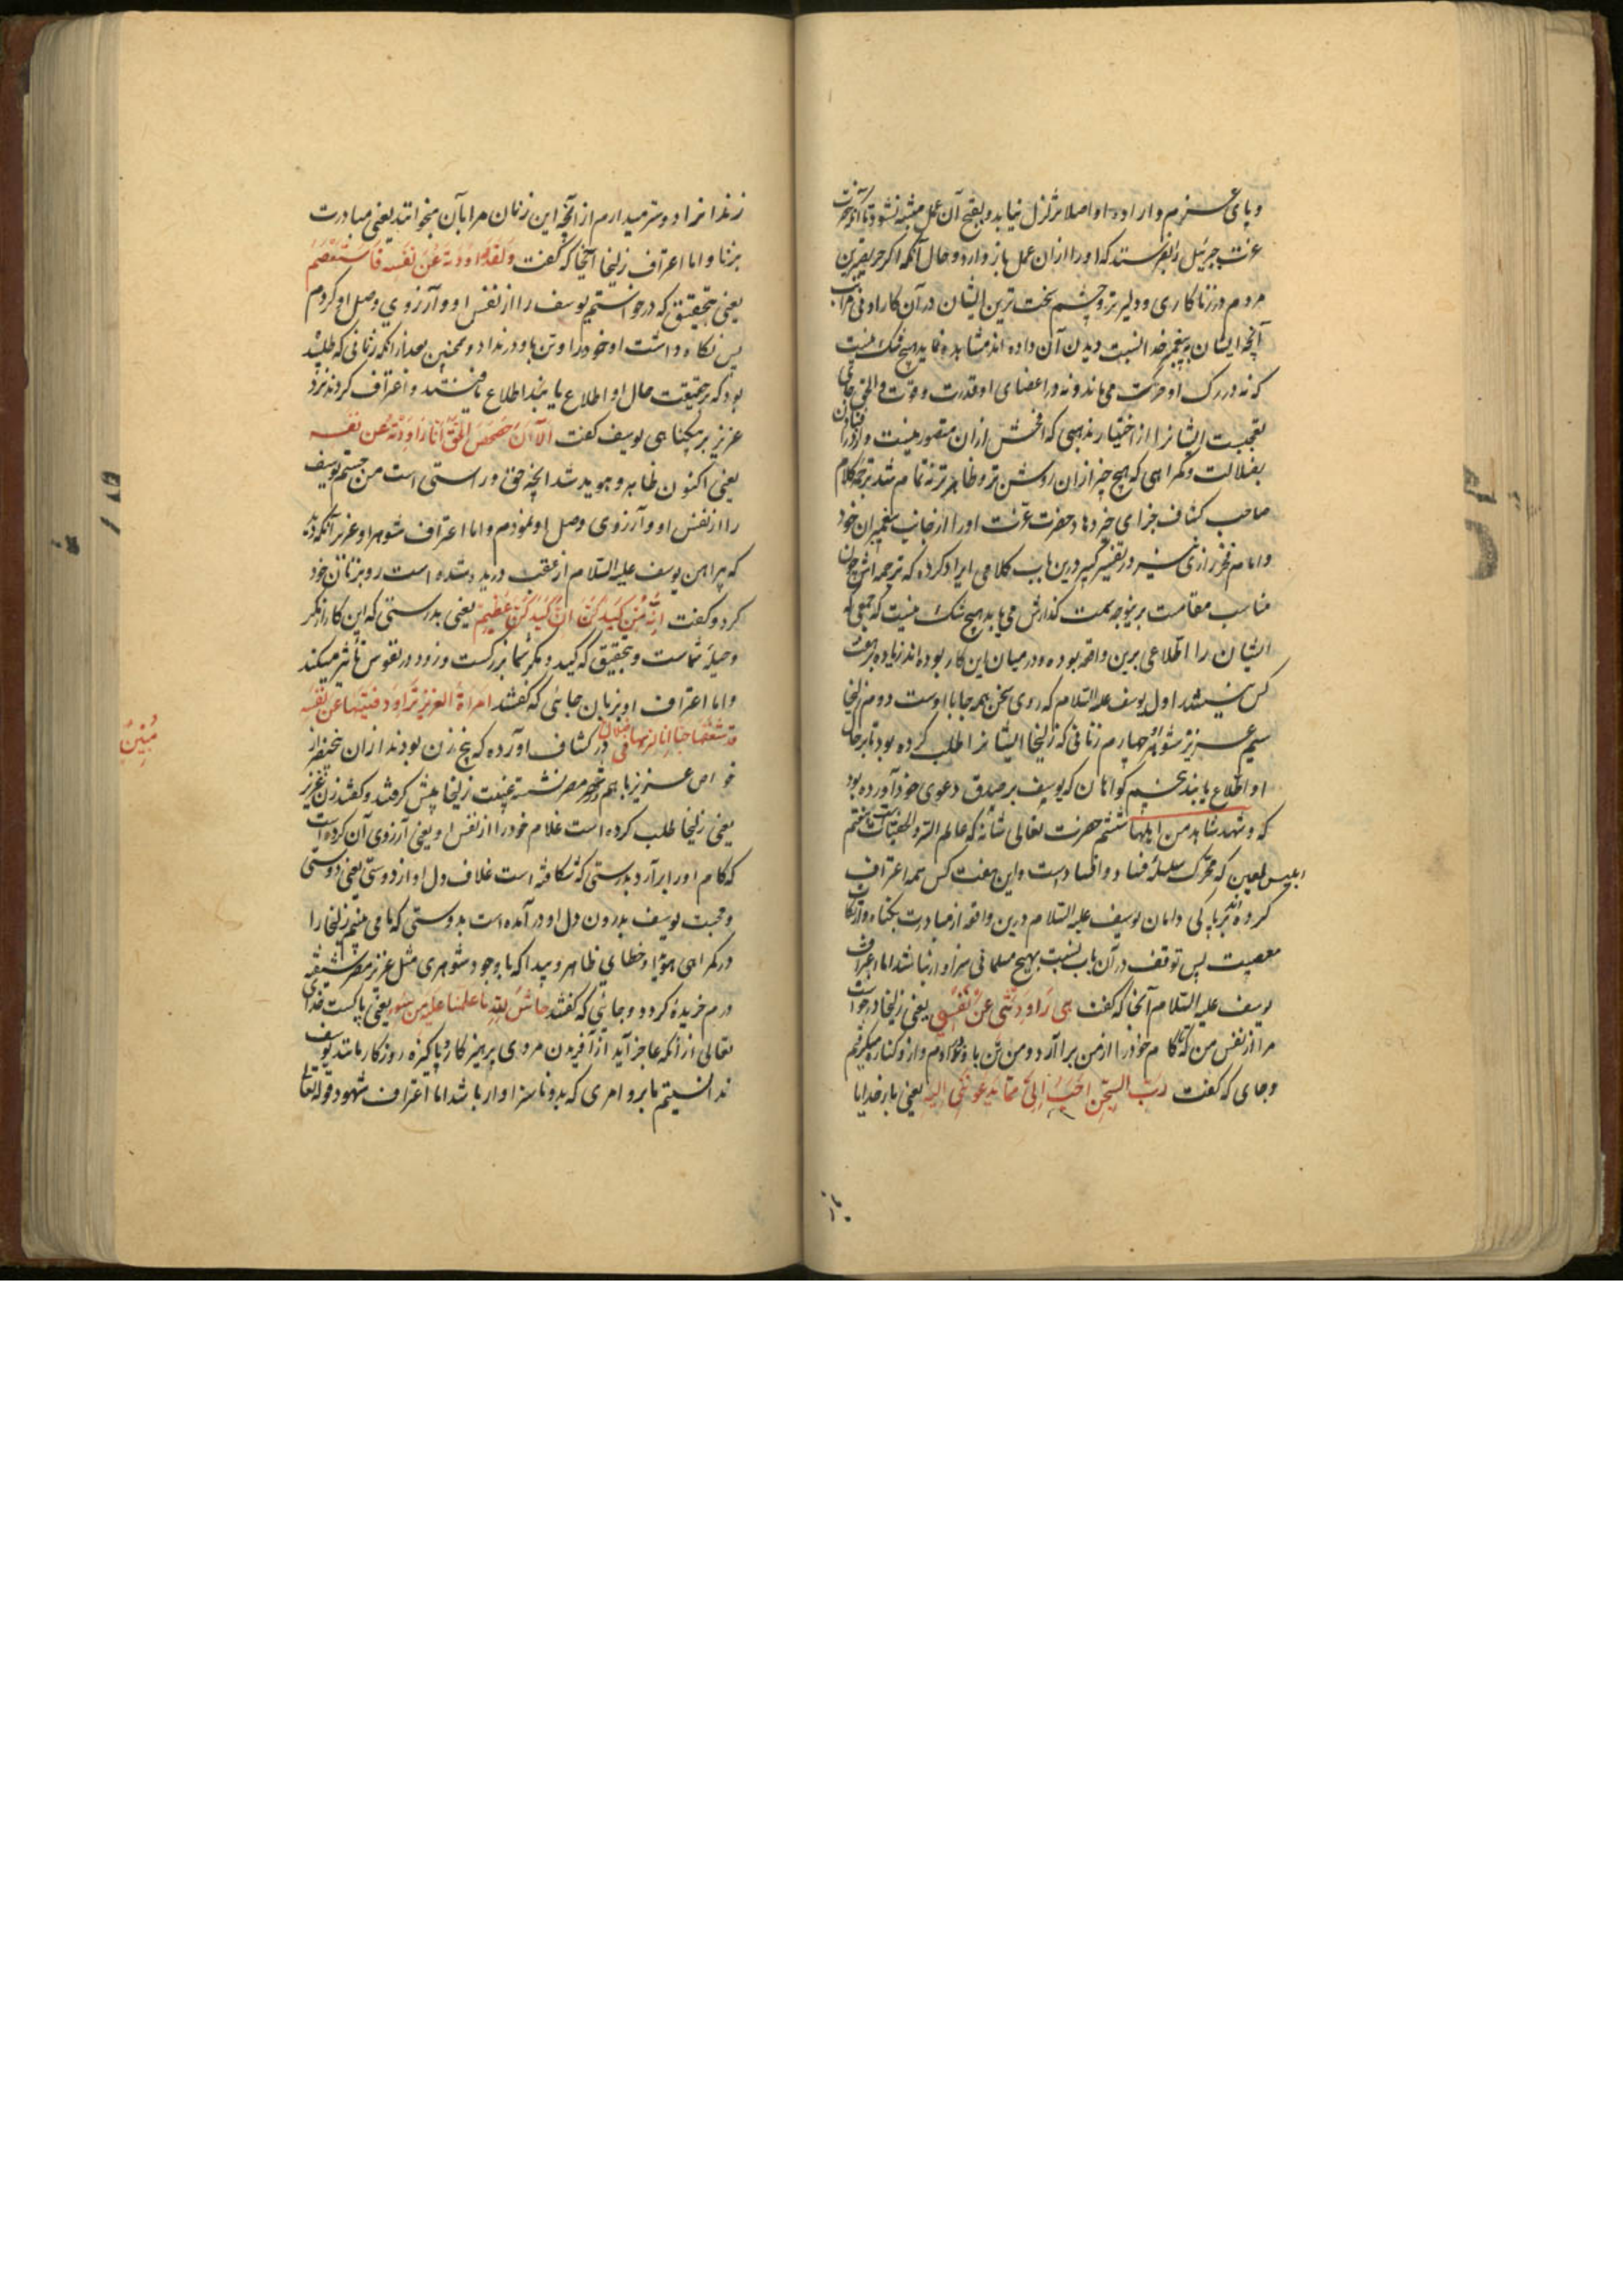 و پای عزم و اراده او اصلا تزلزل نیابد و بقبح آن عمل متنبه نشود تا آنکه حضرت
عزت جبرئیل را بفرستد که او را ازان عمل باز دارد و حال آنکه اگر حریص‌ترین
مردم در زناکاری و دلیرتر و چشم سخت ترین ایشان در آن کار ادنی مراتب
آنچه ایشان به پیغمبر خدا نسبت دیدن آن داده اند مشاهده نماید هیچ شک نیست
که نه در رگ او حرکت می ماند و نه در اعضای او قدرت و قوت و الحق جای
تعجبست ایشانرا از اختیار مذهبی که افحش ازان متصور نیست و افتادن
بضلالت و گمراهی که هیچ چیز ازان روشن تر و ظاهرتر نه تمام شد ترجمه کلام
صاحب کشاف جزای خیر دهاد حضرت عزت او را از جانب پیغمبران خود
و امام فخر رازی نیز در تفسیر کبیر درین باب کلامی ایراد کرده که ترجمه اش چون
مناسب مقامست برینوجه سمت گذارش می یابد هیچ شک نیست که جمعی که
ایشان را اطلاعی برین واقعه بوده و در میان این کار بوده اند زیاده بر هفت
کس نیستند اول یوسف علیه السلام که روی سخن همه جا با اوست دوم زلیخا
سیم عزیز شوهر او چهارم زنانی که زلیخا ایشانرا طلب کرده بود تا بر حال
او اطلاع یابند پنجم گواهان که یوسف بر صدق دعوی خود آورده بود
که و شهد شاهد من اهلها ششم حضرت تعالی شانه که عالم السر و الخفیات است هفتم
ابلیس لعین که محرک سلسله فساد و افسادست و این هفت کس همه اعتراف
کرده اند بر پاکی دامان یوسف علیه السلام درین واقعه از مبادرت بگناه و ارتکاب
معصیت پس توقف در آن باب نسبت بهیچ مسلمانی سزاوار نباشد اما اعتراف
یوسف علیه السلام آنجا که گفت هی راودتنی عن نفسی یعنی زلیخا درخواست
مرا از نفس من که تا کام خود را از من برآرد و من تن با و ندادم و ازو کناره میگرفتم
و جای که گفت رب السجن احب الی مما یدعوننی الیه یعنی بار خدایا
زندانرا دوستر میدارم از آنچه این زنان مرا بآن میخوانند یعنی مبادرت
بزنا و اما اعتراف زلیخا آنجا که گفت ولقد راودته عن نفسه فاستعصم
یعنی بتحقیق که درخواستم یوسف را از نفس او و آرزوی وصل او کردم
پس نگاه داشت او خود را و تن باو در نداد و همچنین بعد از آنکه زنانی که طلبیده
بود که بر حقیقت حال او اطلاع یابند اطلاع یافتند و اعتراف کردند نزد
عزیز بر بیگناهی یوسف گفت الآن حصحص الحق انا راودته عن نفسه
یعنی اکنون ظاهر و هویدا شد آنچه حق و راستی است من جستم یوسف
را از نفس او و آرزوی وصل او نمودم و اما اعتراف شوهر او عزیز آنکه دید
که پیراهن یوسف علیه السلام از عقب دریده شده است رو بزنان خود
کرد و گفت انه من کیدکن ان کیدکن عظیم یعنی بدرستی که این کار از مکر
و حیله شماست و بتحقیق که کید و مکر شما بزرگست و زود در نفوس تأثیر میکند
و اما اعتراف او بزبان جائی که گفتند امراة العزیز تراود فتیها عن نفسه
قد شغفها حبا انا لنریها فی ضلال در کشاف آورده که پنج زن بودند ازان پنج نفر از
مبین
خواص عزیز باهم در شهر مصر نشسته غیبت زلیخا پیش گرفتند و گفتند زن عزیز
یعنی زلیخا طلب کرده است غلام خود را از نفس او یعنی آرزوی آن کرده است
که کام او را برآرد بدرستی که شکافته است غلاف دل او از دوستی یعنی دوستی
و محبت یوسف بدرون دل او درآمده است بدرستی که ما می بینیم زلیخا را
در گمراهی هویدا و خطای ظاهر و پیدا که با وجود شوهری مثل عزیز مصر شیفته
درم خریده گردد و جائی که گفتند حاش لله ما علمنا علیه من سوء یعنی پاکست خدای
تعالی از آنکه عاجز آید از آفریدن مردی پرهیزکار و پاکیزه روزگار مانند یوسف
ندانستیم ما برو امری که بدو ناسزاوار باشد اما اعتراف شهود قوله تعالی